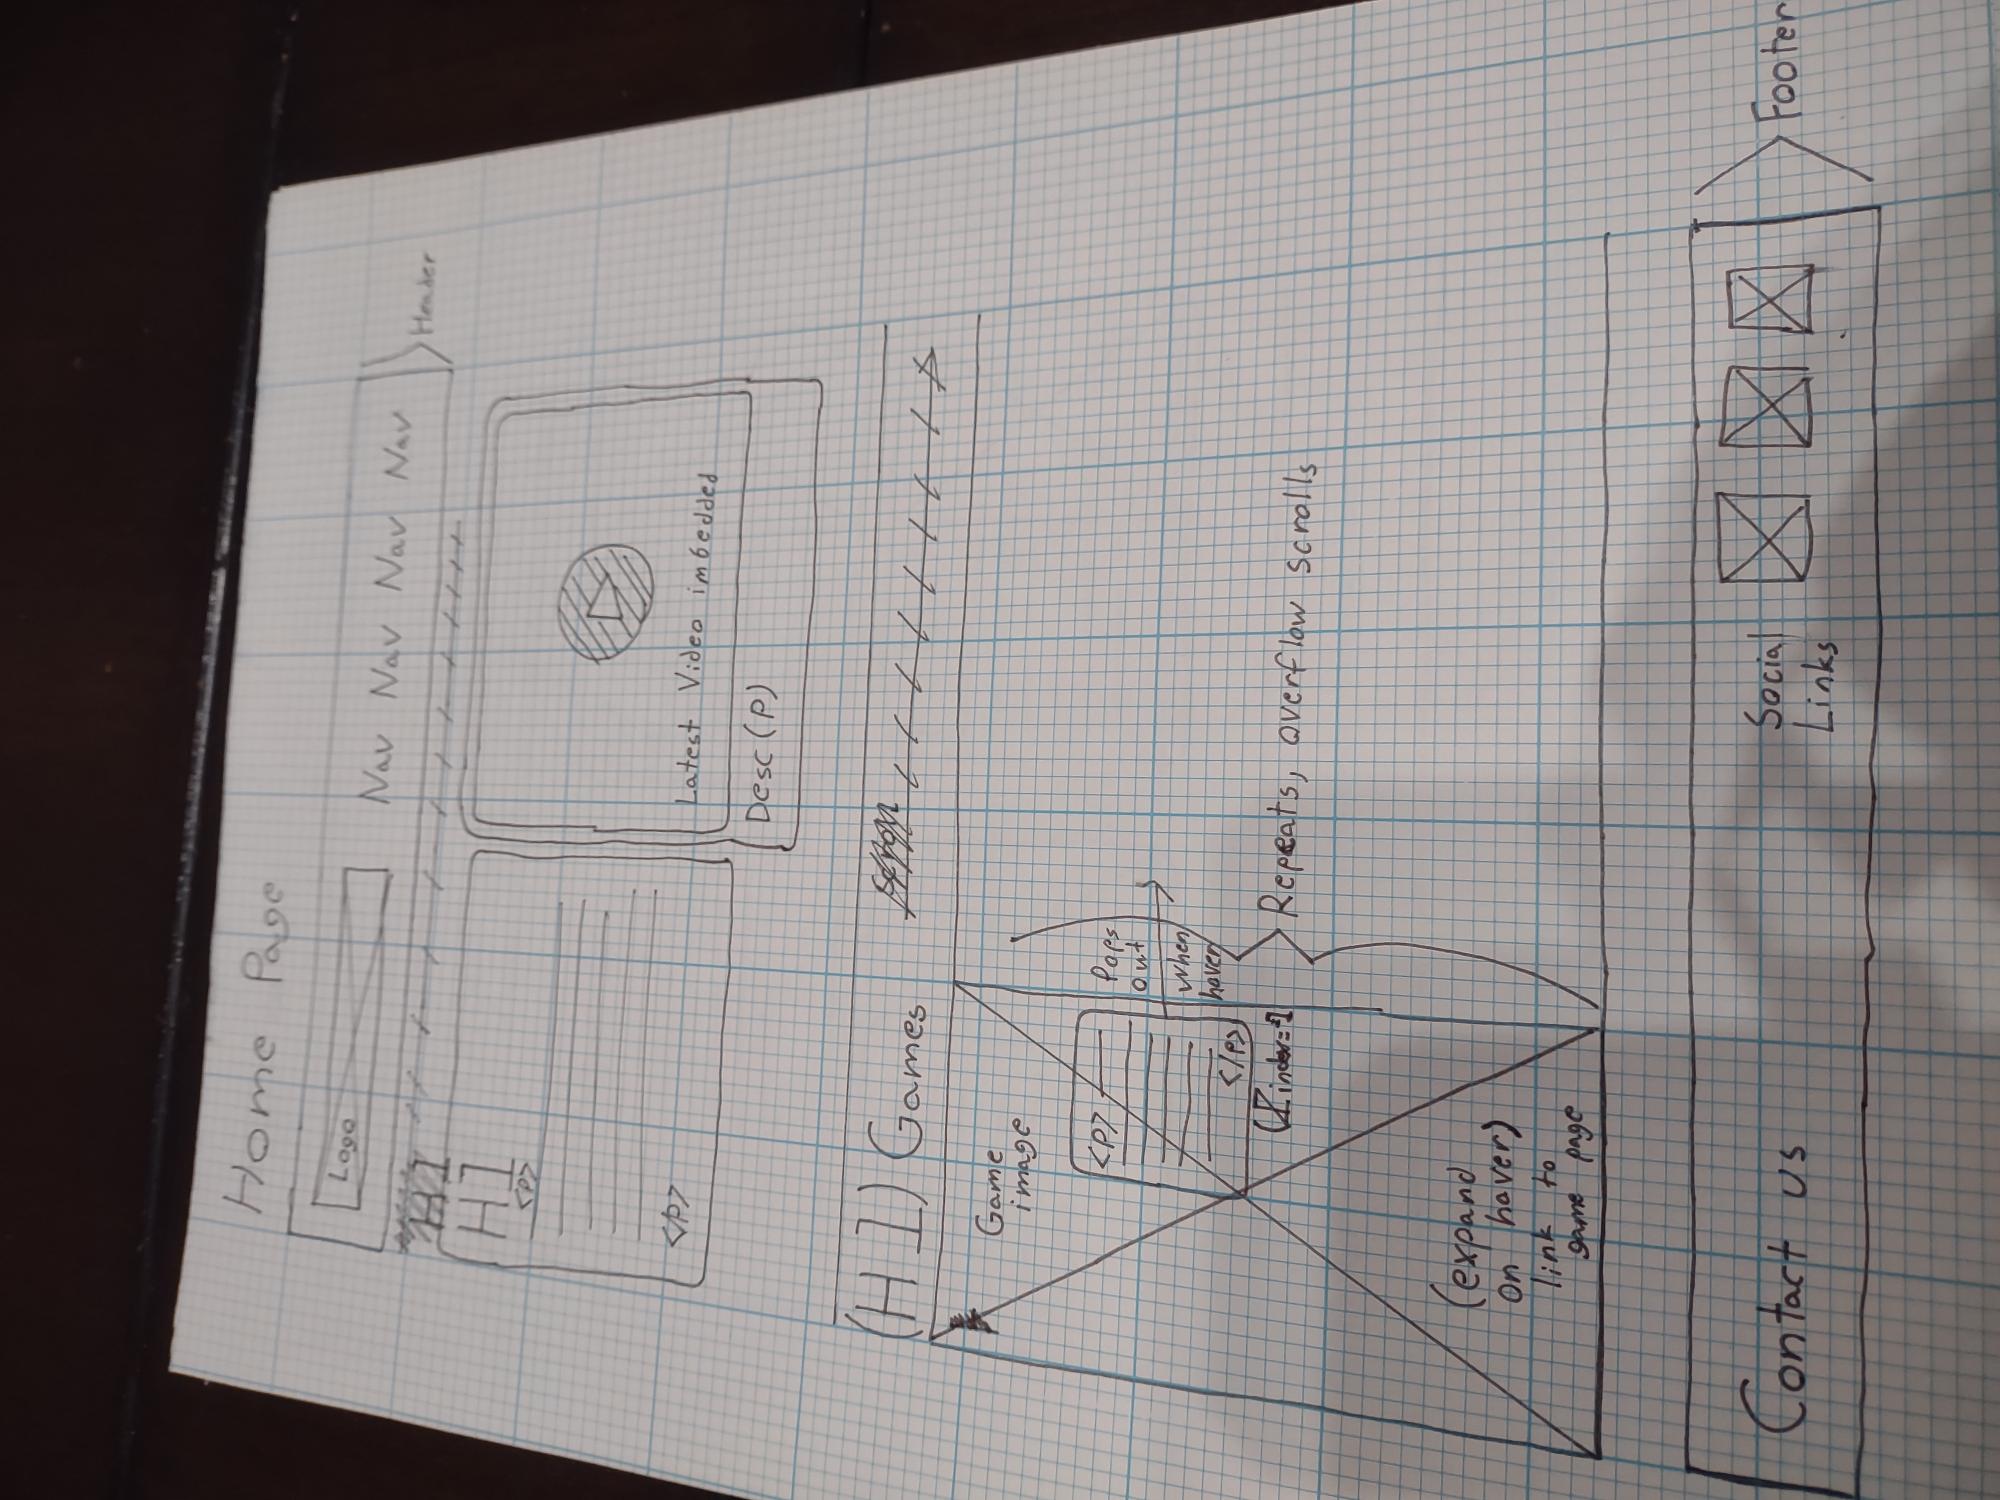 Home Page
Logo
Nav Nav Nav Nav
Header
H1
H1
<p>
</p>
Latest Video imbedded
Desc (P)
(H1) Games
Game
image
<p>
</p>
Pops
out
when
hover
(Zindex=-1
Repeats, overflow scrolls
(expand
on hover)
link to
game page
Contact us
Social
Links
Footer